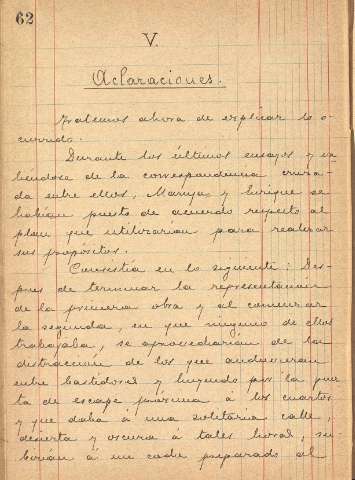 62
V.
Aclaraciones.
Tratemos ahora de explicar lo o-
currido.
Durante los últimos ensayos y va-
liendose de la correspondencia cruza-
da entre ellos, Maruja y Enrique se
habían puesto de acuerdo respecto al
plan que utilizarían para realizar
sus propósitos.
Consistía en lo siguiente: Des-
pues de terminar la representación
de la primera obra y al comenzar
la segunda, en que ninguno de ellos
trabajaba, se aprovecharían de la
distracción de los que anduvieran
entre bastidores y huyendo por la puer-
ta de escape proxima á los cuartos
y que daba á una solitaria calle,
desierta y oscura á tales horas, su-
birían á un coche preparado al